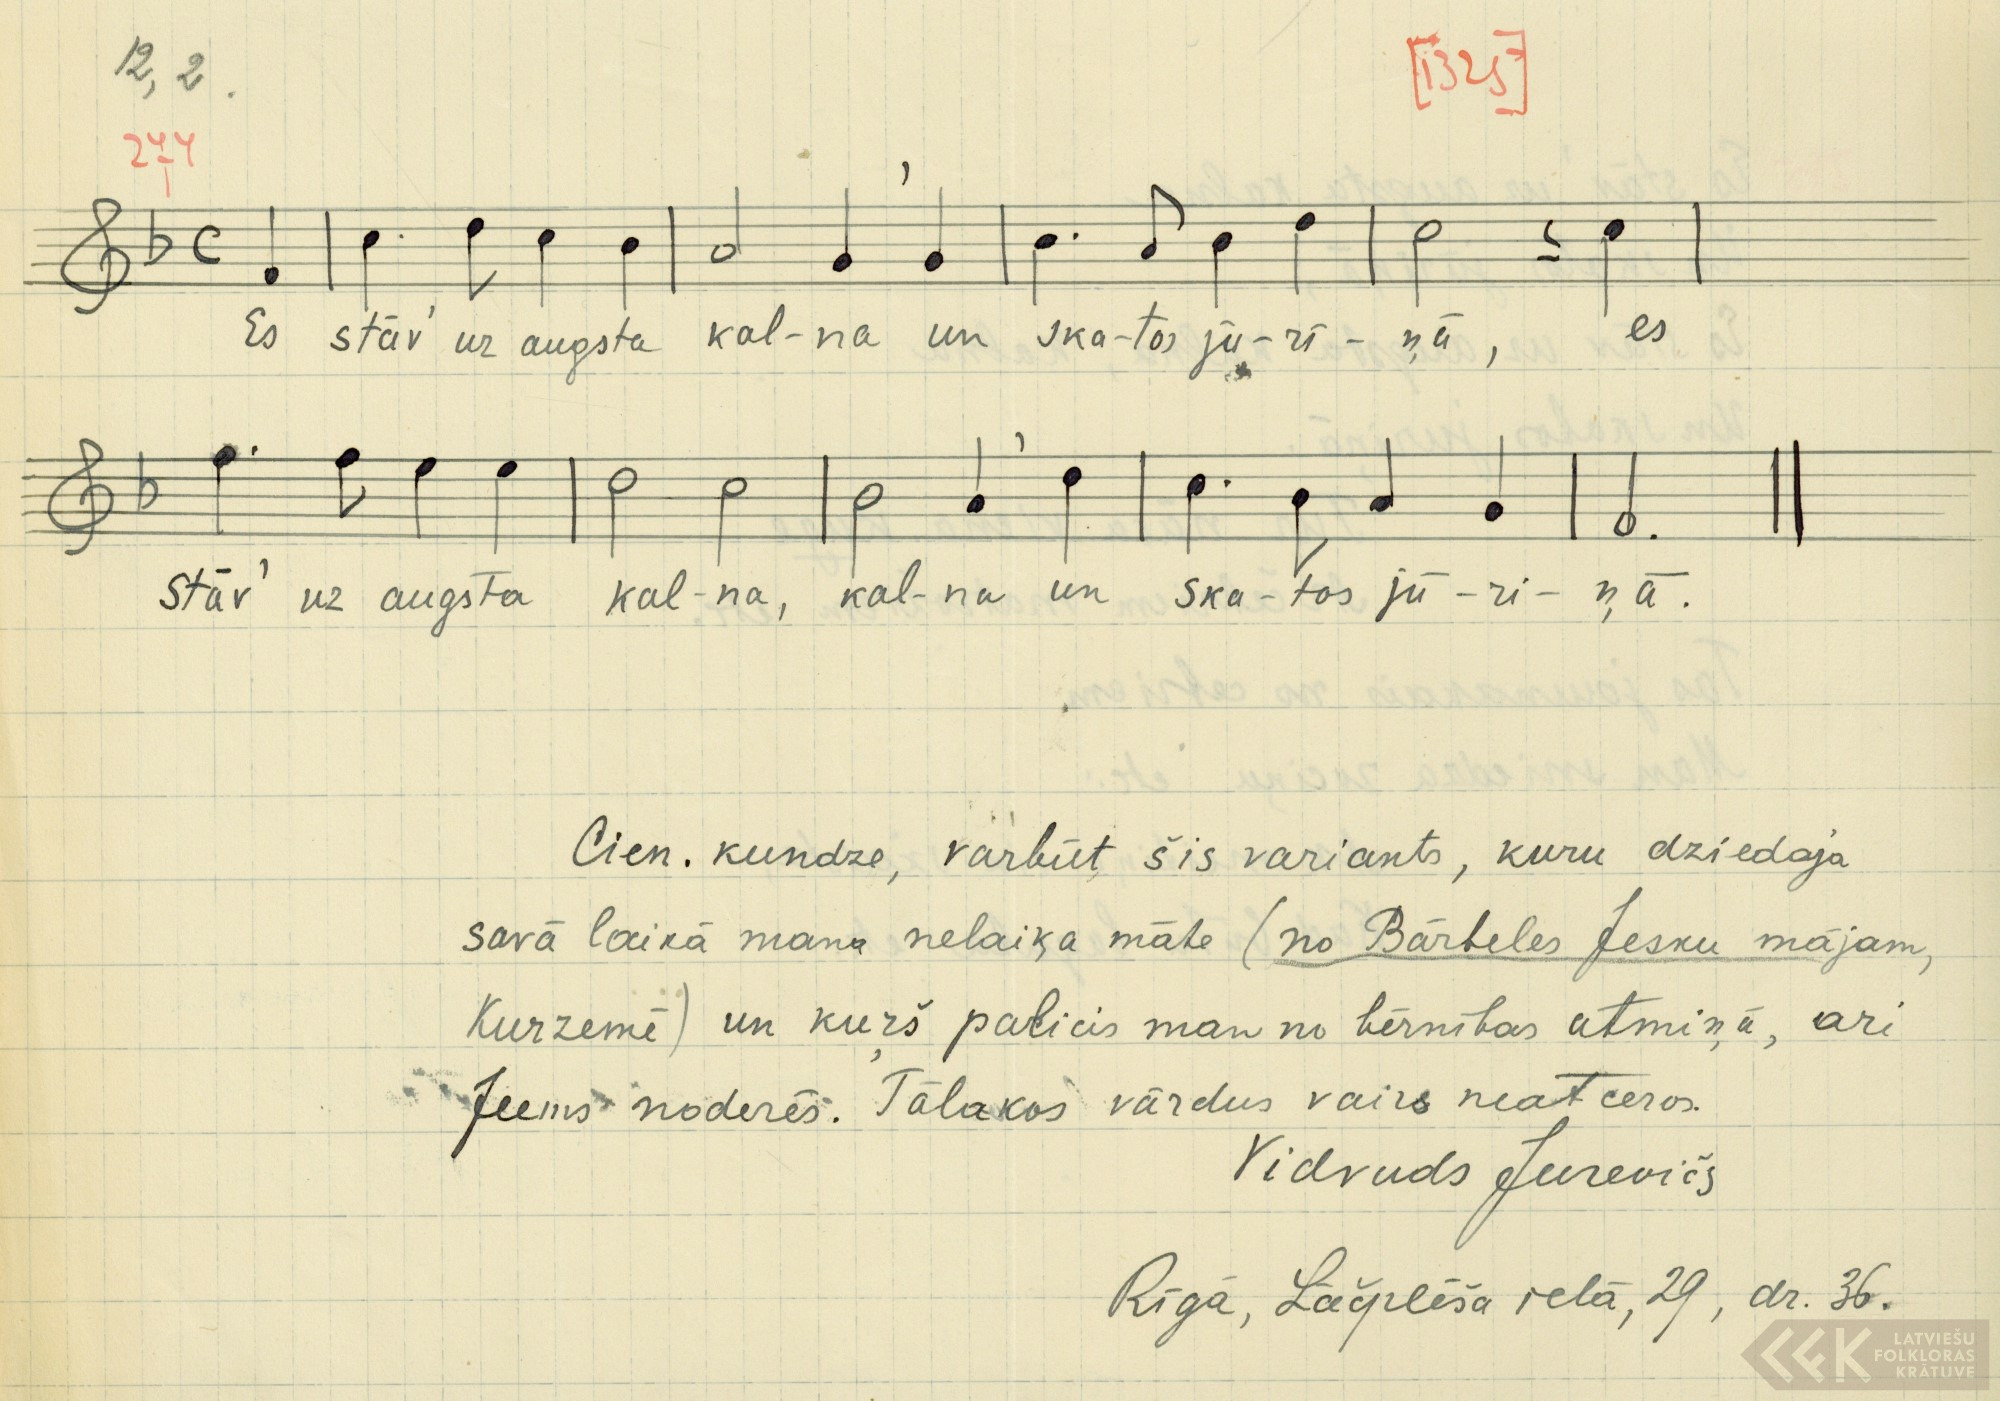 12, 2.
[1325]
244
Es stāv' uz augsta kal-na un ska-tos jū-ri-ņā, es
stāv' uz augsta kal-na, kal-na un ska-tos jū-ri-ņā.
Cien. kundze, varbūt šis variants, kuru dziedāja
savā laikā mana nelaiķa māte (no Bārbeles Jesku mājam,
Kurzemē) un kuŗš palicis man no bērnības atmiņā, ari
Jums noderēs. Tālakos vārdus vairs neatceros.
Vidvuds Jurevičs
Rīgā, Lāčplēša ielā, 29, dz. 36.
LATVIEŠU
FOLKLORAS
KRĀTUVE